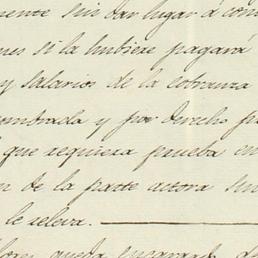 mente sin dar lugar á con
nes si la hubiere pagará
y salarios de la cobranza
nombrada y por derecho p
que requiera prueba en
n de la parte actora sin
le releva.
queda encargado de